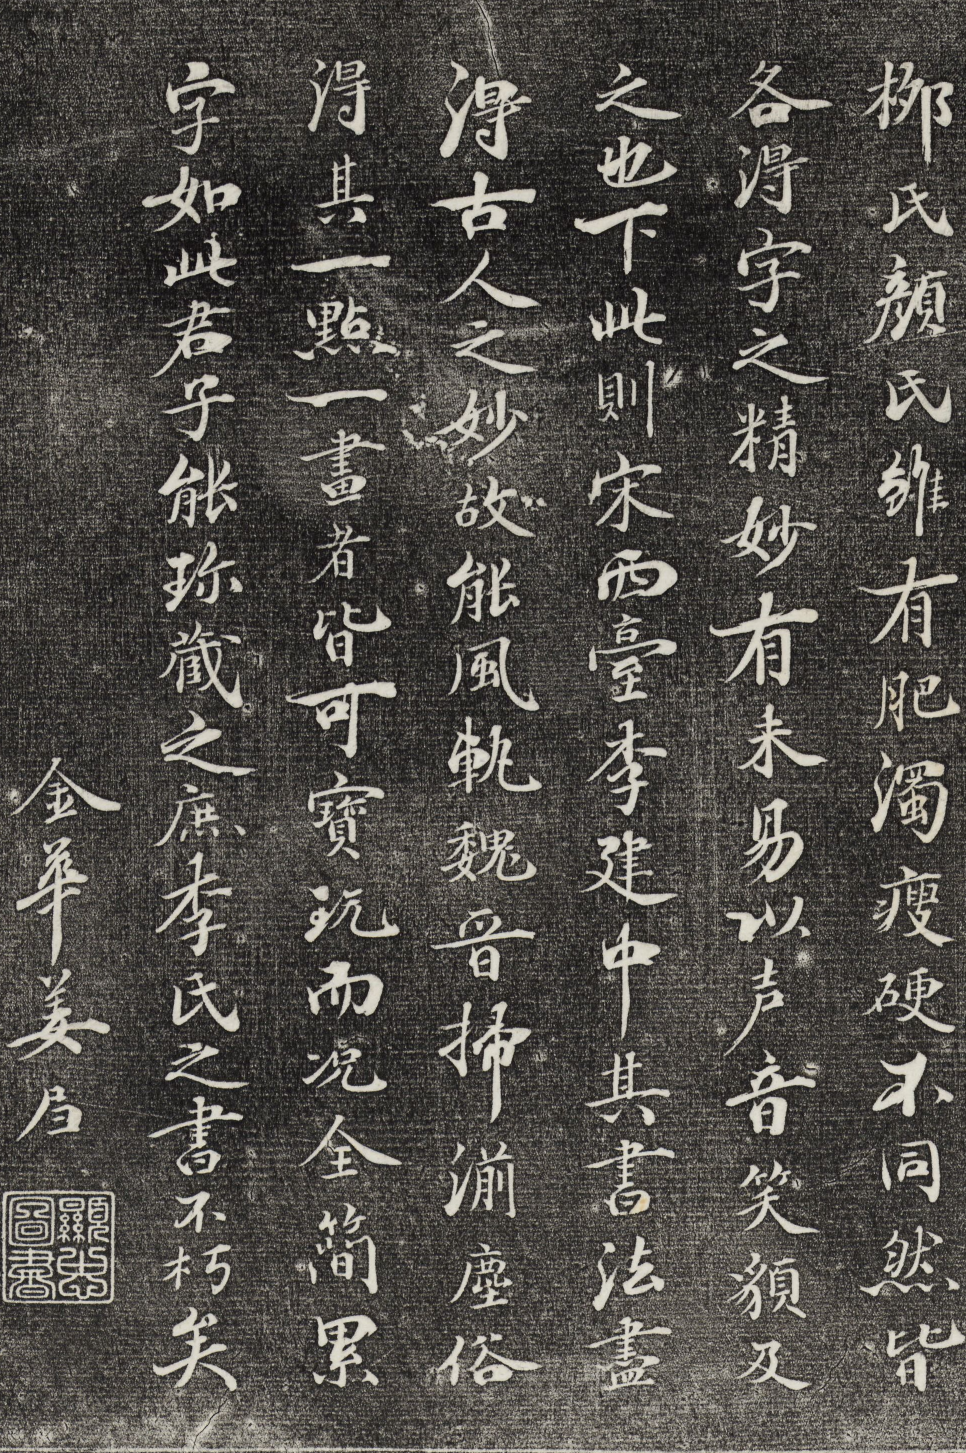 柳氏顔氏雖有肥濁瘦硬不同然皆
各得字之精妙有未易以声音笑貌及
之也下此則宋西臺李建中其書法盡
得古人之妙故能風軌魏晋掃湔塵俗
得其一點一畫者皆可寶玩而况全簡累
字如此君子能珎藏之庶李氏之書不朽矣
金華姜